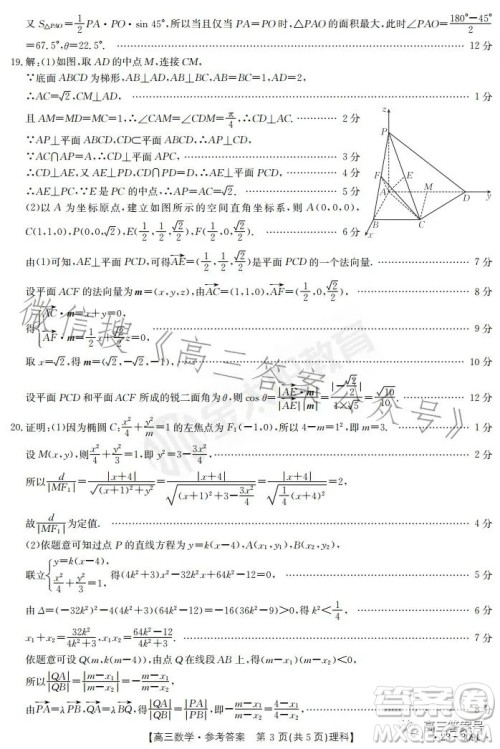 又 S△PAO=1/2 PA·PO·sin 45°,所以当且仅当 PA=PO 时,△PAO 的面积最大,此时∠PAO=(180°-45°)/2
=67.5°,θ=22.5°. 12 分
19.解:(1)如图,取 AD 的中点 M,连接 CM,
∵底面 ABCD 为梯形,AB⊥AD,AB=BC=1,AD=2,
∴AC=√2,CM⊥AD,
且 AM=MD=MC=1,∴∠CAM=∠CDM=π/4, 2 分
∵AP⊥平面 ABCD,CD⊂平面 ABCD,∴AP⊥CD.
∵AC∩AP=A,∴CD⊥平面 PAC, 3 分
∴CD⊥AE,又 AE⊥PD,CD∩PD=D,∴AE⊥平面 PCD, 4 分
∴AE⊥PC,∵E 是 PC 的中点,∴AP=AC=√2. 5 分
z
P
F
E
A
M
D
y
B
C
x
(2)以 A 为坐标原点,建立如图所示的空间直角坐标系,则 A(0,0,0),
C(1,1,0),P(0,0,√2),E(1/2,1/2,√2/2),F(1/2,0,√2/2). 6 分
由(1)可知,AE⊥平面 PCD,可得AE=(1/2,1/2,√2/2)是平面 PCD 的一个法向量. 7 分
设平面 ACF 的法向量为 m=(x,y,z),由AC=(1,1,0),AF=(1/2,0,√2/2), 8 分
得{AC·m=x+y=0, AF·m=1/2x+√2/2z=0, 9 分
取 x=√2,得 m=(√2,-√2,-1). 10 分
设平面 PCD 和平面 ACF 所成的锐二面角为 θ,则 cos θ=|AE·m|/(|AE||m|)=|-√2/2|/(1×√5)=√10/10. 12 分
20.证明:(1)因为椭圆 C:x²/4+y²/m=1 的左焦点为 F₁(-1,0),所以 4-m=1²,即 m=3. 1 分
设 M(x,y),则 x²/4+y²/3=1,即 y²=3-3x²/4, 2 分
所以 d/|MF₁|=|x+4|/√((x+1)²+y²)=|x+4|/√((x+1)²+3-3x²/4)=|x+4|/√(1/4(x+4)²)=2,
故 d/|MF₁| 为定值. 4 分
(2)依题意可知过点 P 的直线方程为 y=k(x-4),A(x₁,y₁),B(x₂,y₂),
联立{y=k(x-4), x²/4+y²/3=1, 得(4k²+3)x²-32k²x+64k²-12=0, 5 分
由 Δ=(-32k²)²-4(4k²+3)(64k²-12)=-16(36k²-9)>0,得 k²<1/4, 6 分
x₁+x₂=32k²/(4k²+3),x₁x₂=(64k²-12)/(4k²+3). 7 分
依题意可设 Q(m,k(m-4)),由点 Q 在线段 AB 上,得(m-x₁)(m-x₂)<0,
所以|QA|/|QB|=|m-x₁|/|m-x₂|=-(m-x₁)/(m-x₂). 8 分
由PA=λPB,QA=-λQB,得|QA|/|QB|=|PA|/|PB|,即-(m-x₁)/(m-x₂)=(4-x₁)/(4-x₂),
【高三数学·参考答案 第 3 页(共 5 页)理科】
微信搜《高三答案公众号》
金太阳教育
答案圈